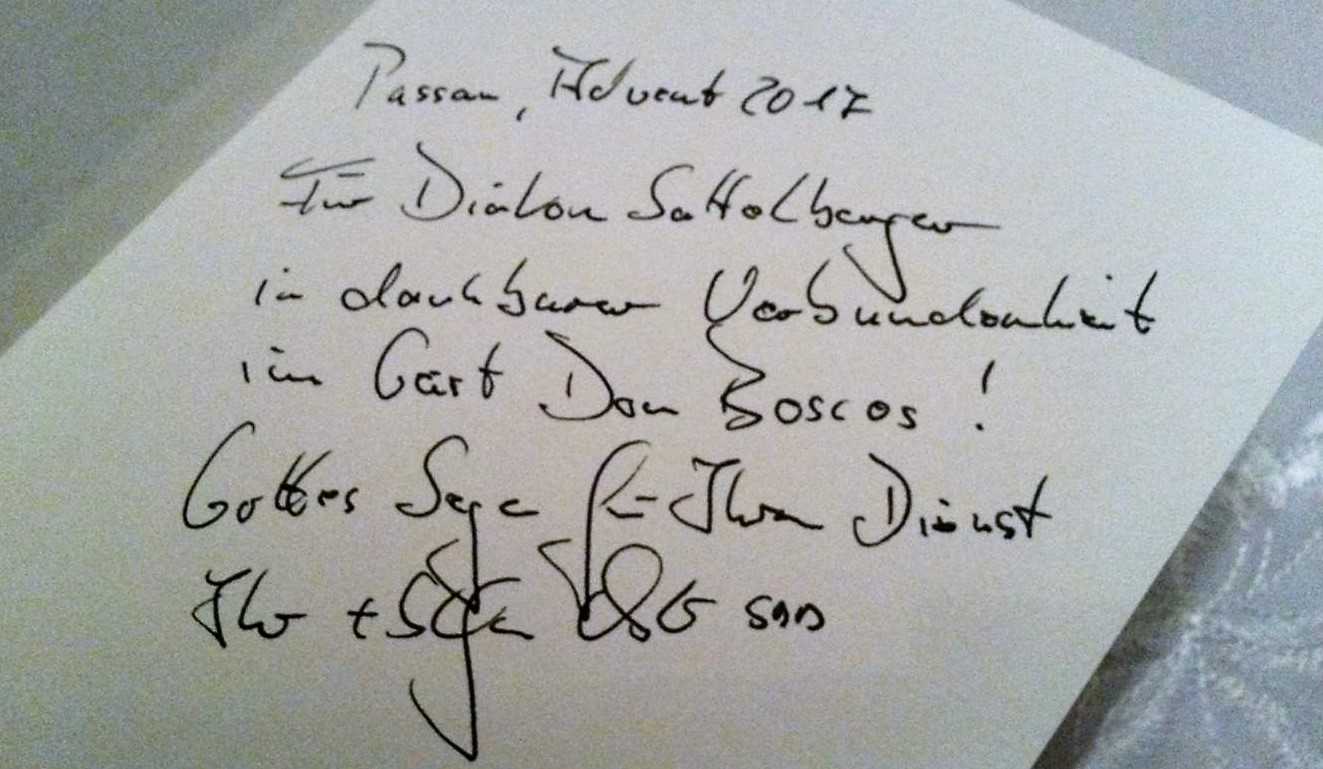 Passau, Advent 2017
Für Diakon Sattelberger
in dankbarer Verbundenheit
im Geist Don Boscos!
Gottes Segen für Ihren Dienst
Ihr + Stefan SDB